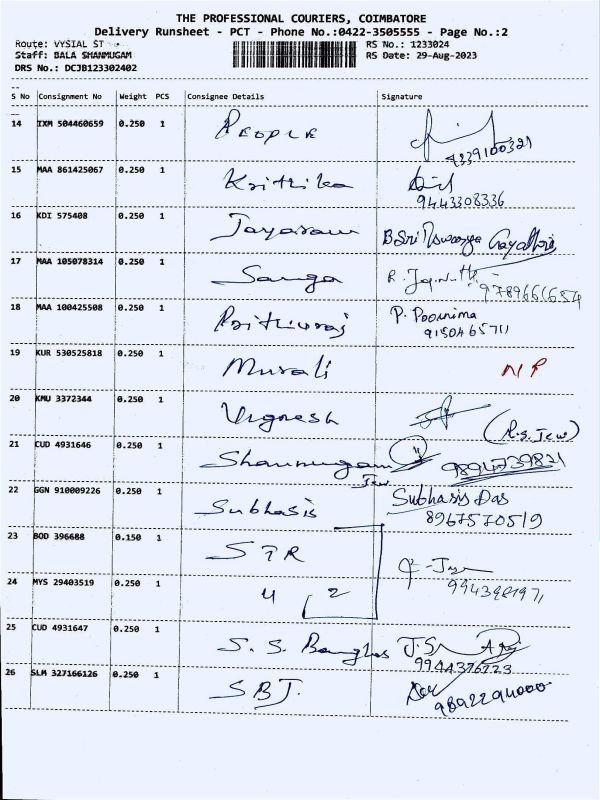 THE PROFESSIONAL COURIERS, COIMBATORE
Delivery Runsheet - PCT - Phone No.:0422-3505555 - Page No.:2
Route: VYSIAL ST
RS No.: 1233024
Staff: BALA SHANMUGAM
RS Date: 29-Aug-2023
DRS No.: DCJB123302402
S No Consignment No Weight PCS Consignee Details Signature
14 IXM 504460659 0.250 1 PEOPLE
9339100321
15 MAA 861425067 0.250 1 Krithika
9443308336
16 KDI 575408 0.250 1 Jayaram B Sri Gayathri
17 MAA 105078314 0.250 1 Sanga
18 MAA 100425508 0.250 1 Prithiviraj P. Poornima
9150465711
19 KUR 530525818 0.250 1 Murali
20 KMU 3372344 0.250 1 Vignesh
(R.S. Jew)
21 CUD 4931646 0.250 1 Shanmugam Jew 9894739831
22 GGN 910009226 0.250 1 Subhasis Subhasis Das
8967570519
23 BOD 396688 0.150 1 STR
24 MYS 29403519 0.250 1 4 2
25 CUD 4931647 0.250 1 S. S. Bangles
9944376223
26 SLM 327166126 0.250 1 SBJ.